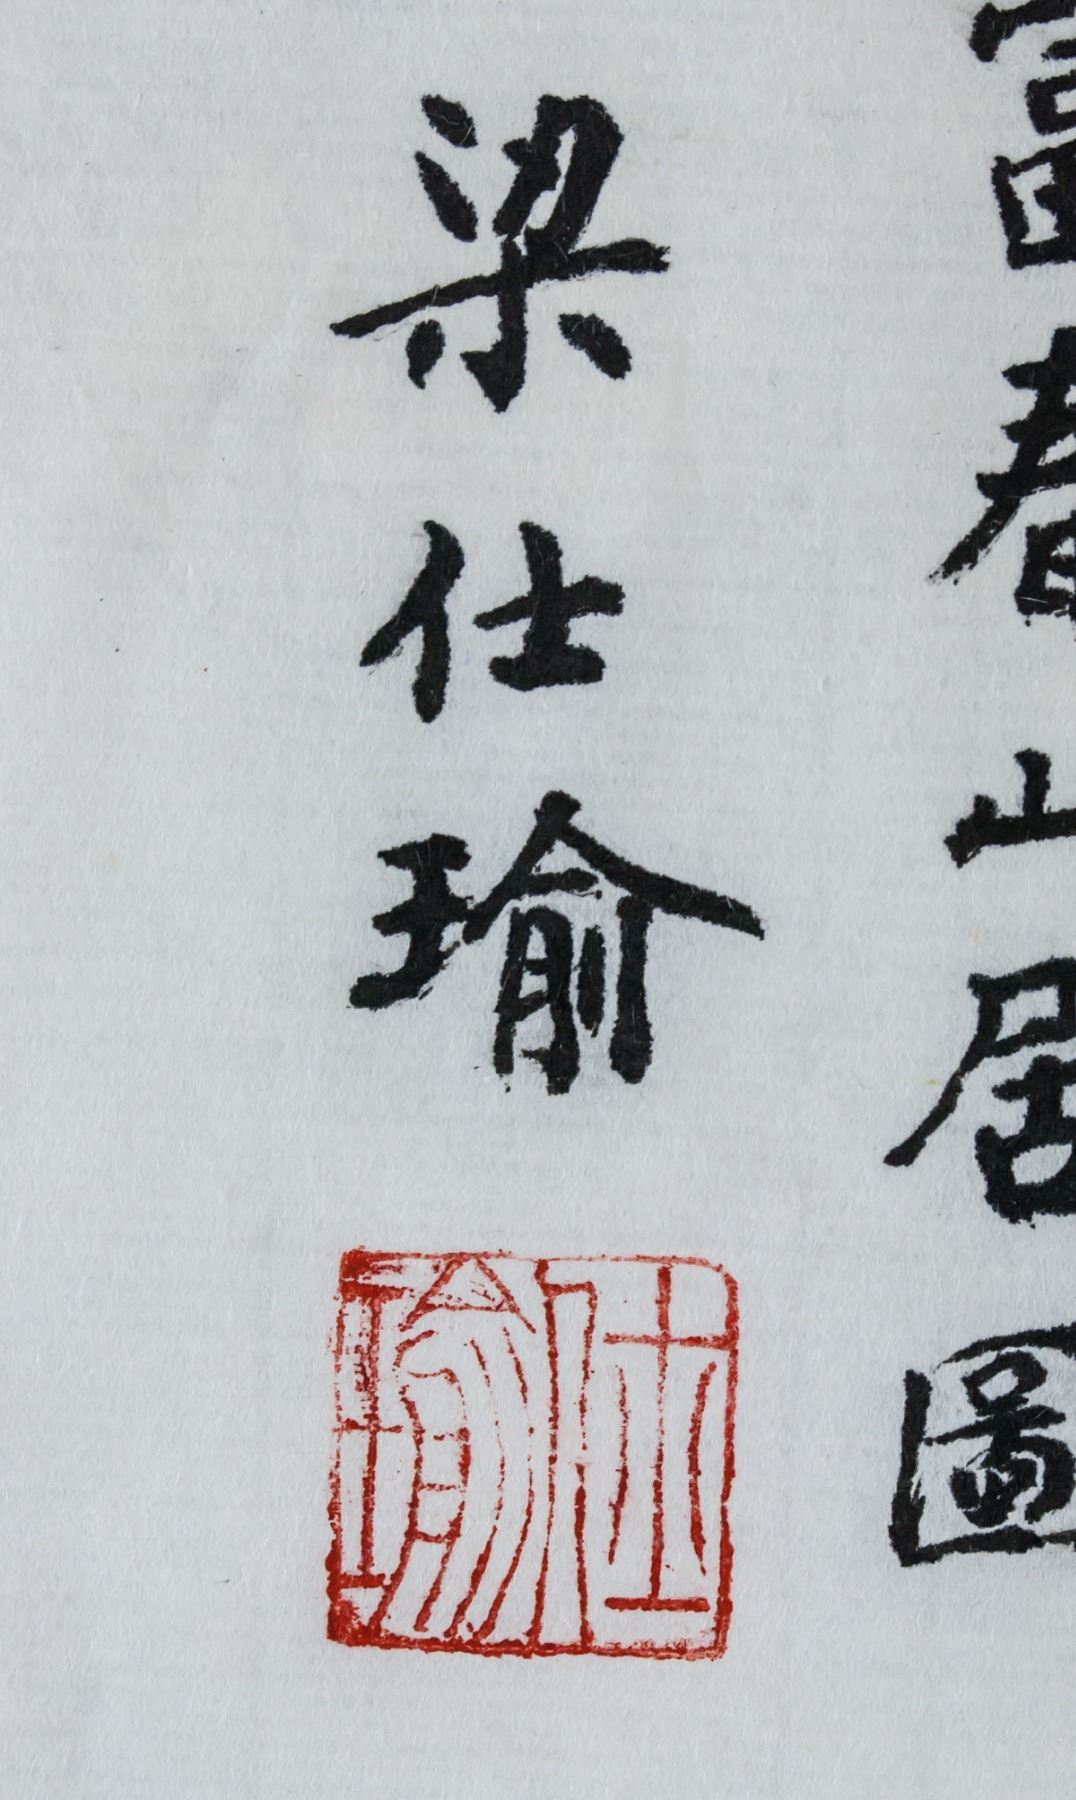 富春山居圖
梁仕瑜
仕瑜